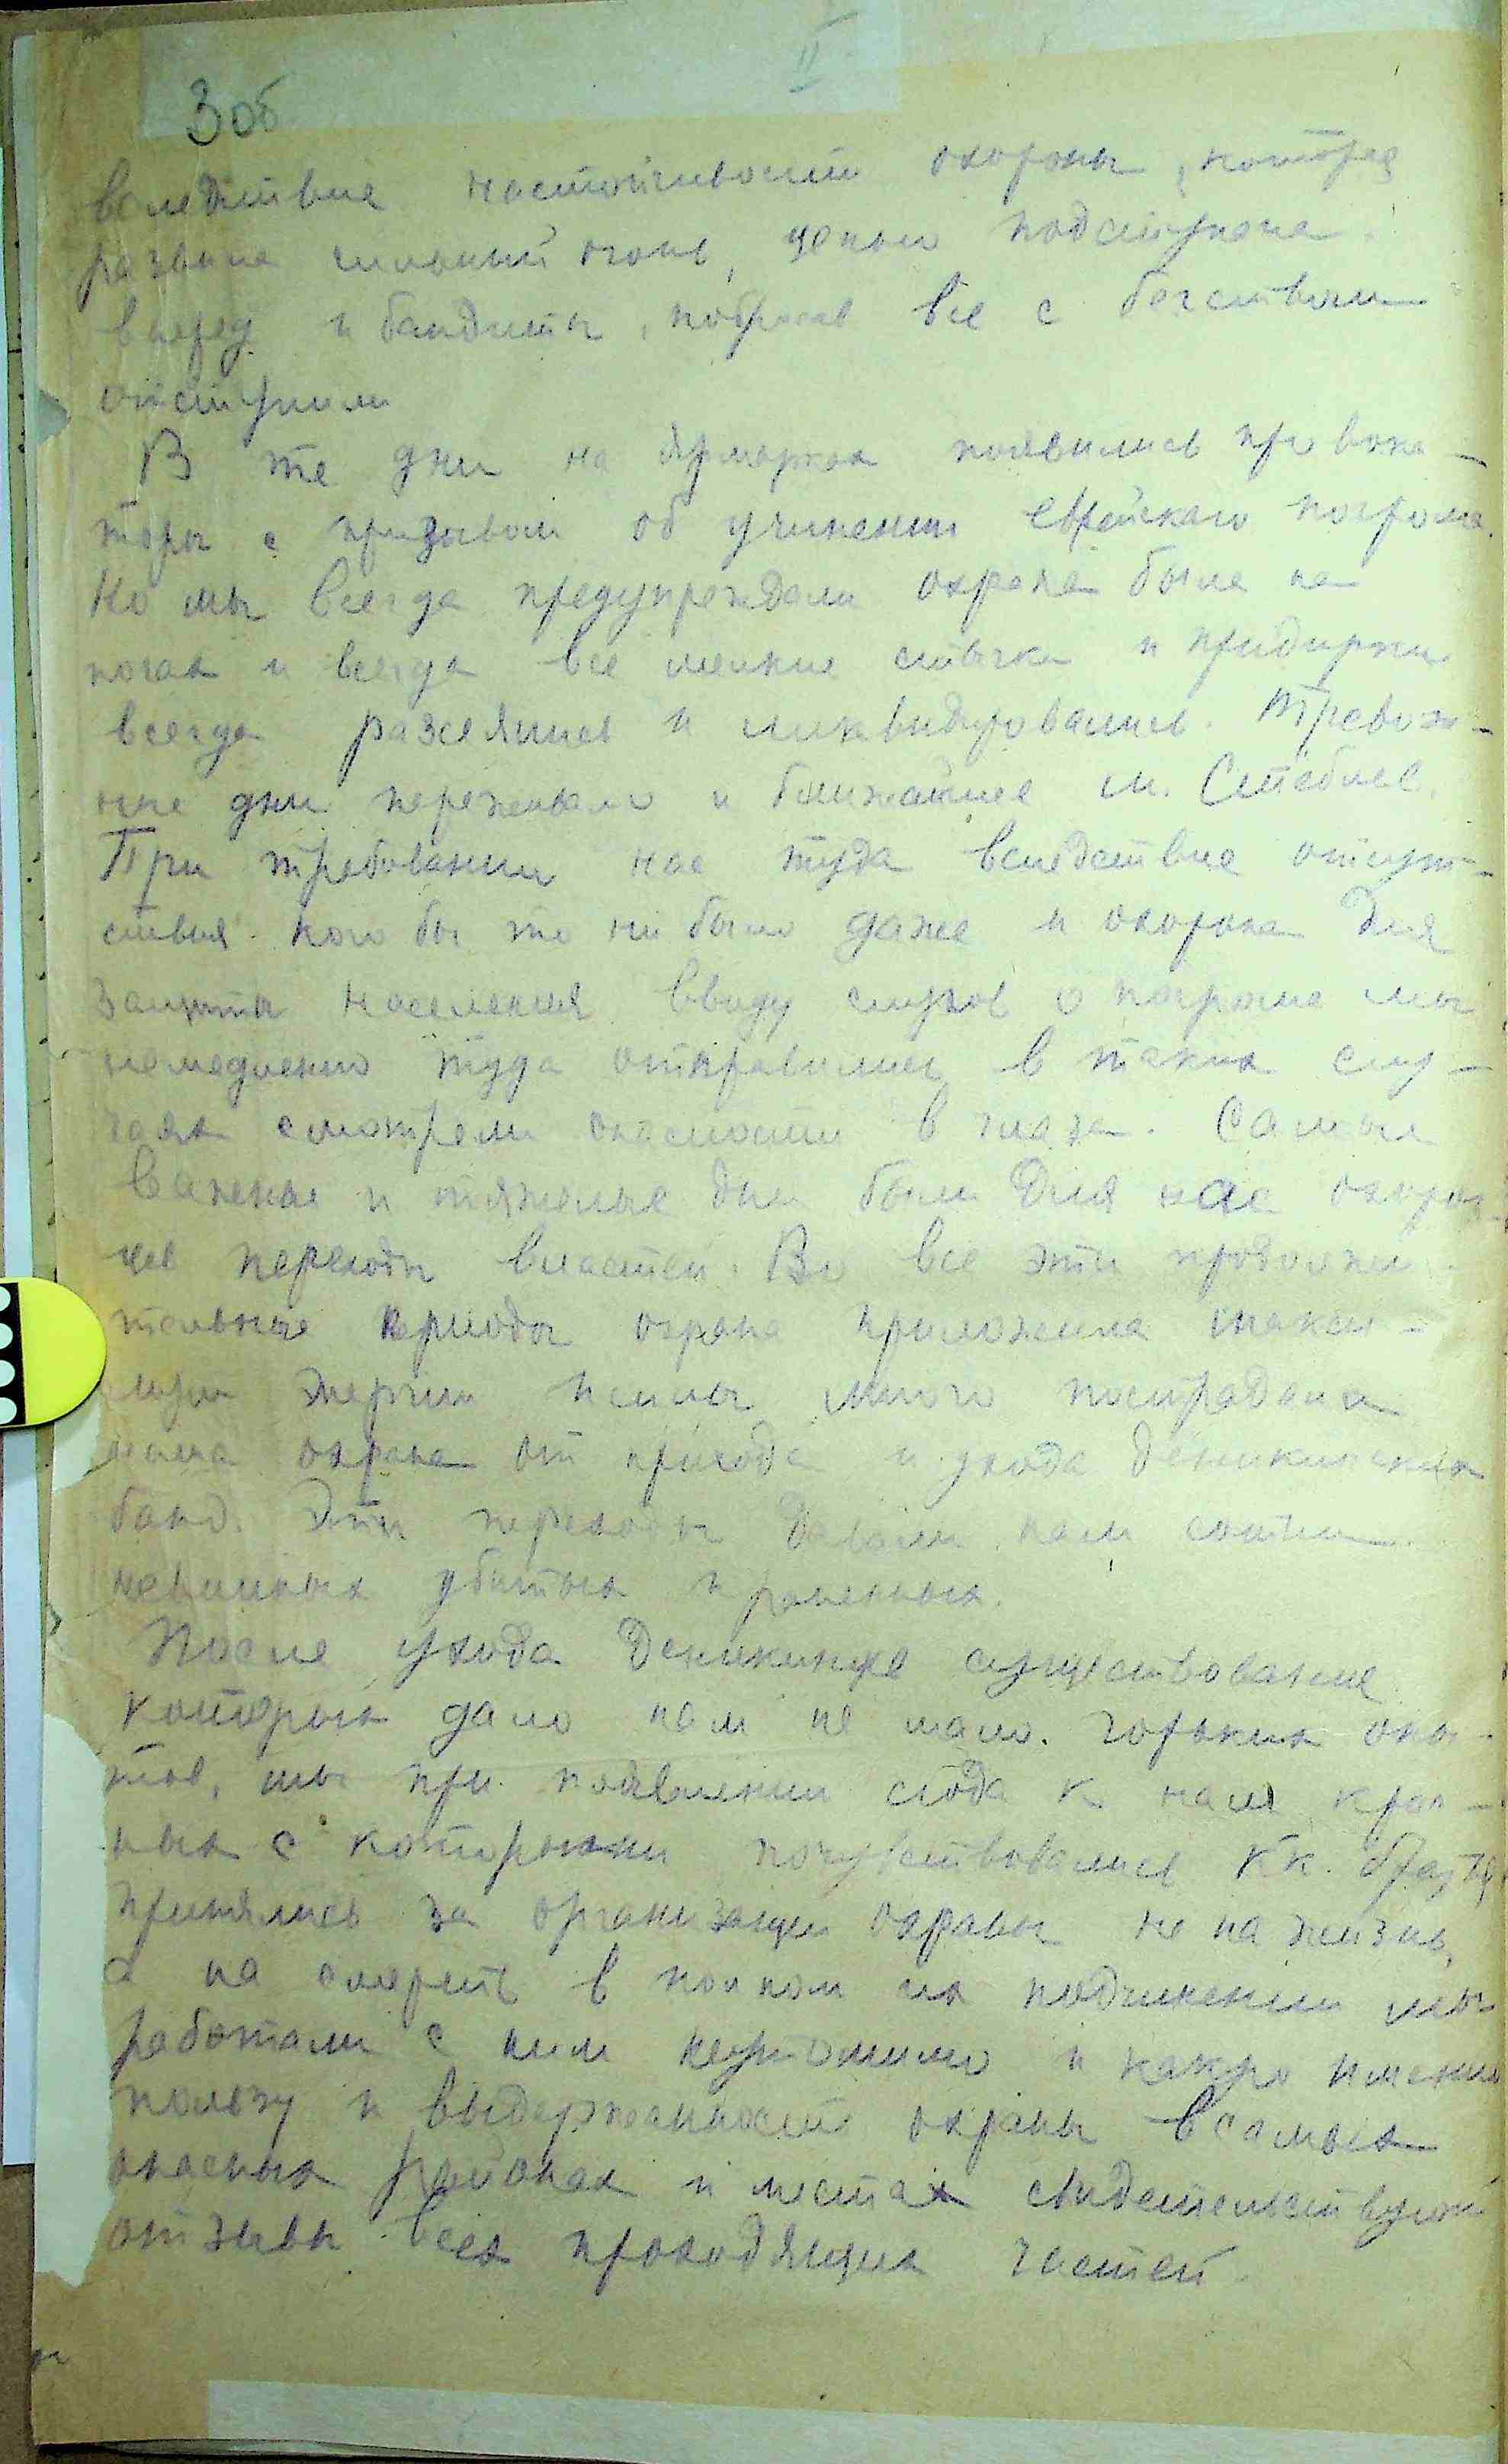 II
3 об
вследствие настойчивости охороны, которая
развила сильный огонь, цепью подступала
вперед и бандиты, побросав все с бегством
отступили
В те дни на ярмарках появились провока-
торы с призывом об учинении еврейскаго погрома.
Но мы всегда предупреждали охрана была на
ногах и всегда все мелкие стычки и придирки
всегда разселялись и ликвидировались. Тревож-
ные дни переживало и ближайшее м. Стеблев.
При требовании нас туда вследствие отсут-
ствия кого бы то ни было даже и охорона для
защиты населения ввиду слухов о погроме мы
немедленно туда отправились, в таких слу-
чаях смотрели опасности в глаза. Самые
важные и тяжелые дни были для нас охорон-
цев переходы властей. Во все эти продолжи-
тельные периоды охрана приложила
энергии и силы много пострадала
наша охрана от прихода и ухода деникинских
банд. Эти переходы давали нам сотни
невинных убитых и раненных.
После ухода Деникинцев существование
которых дало нам не мало горьких опы-
тов, мы при появлении сюда к нам крас-
ных с которыми почувствовались кк. братья
принялись за организацию охраны не на жизнь,
а на смерть в полном их подчинении мы
работали с ним неутомимо и какую именно
пользу и выдержанность охраны в самых
опасных районах и местах свидетельствуют
отзывы всех проходящих частей.